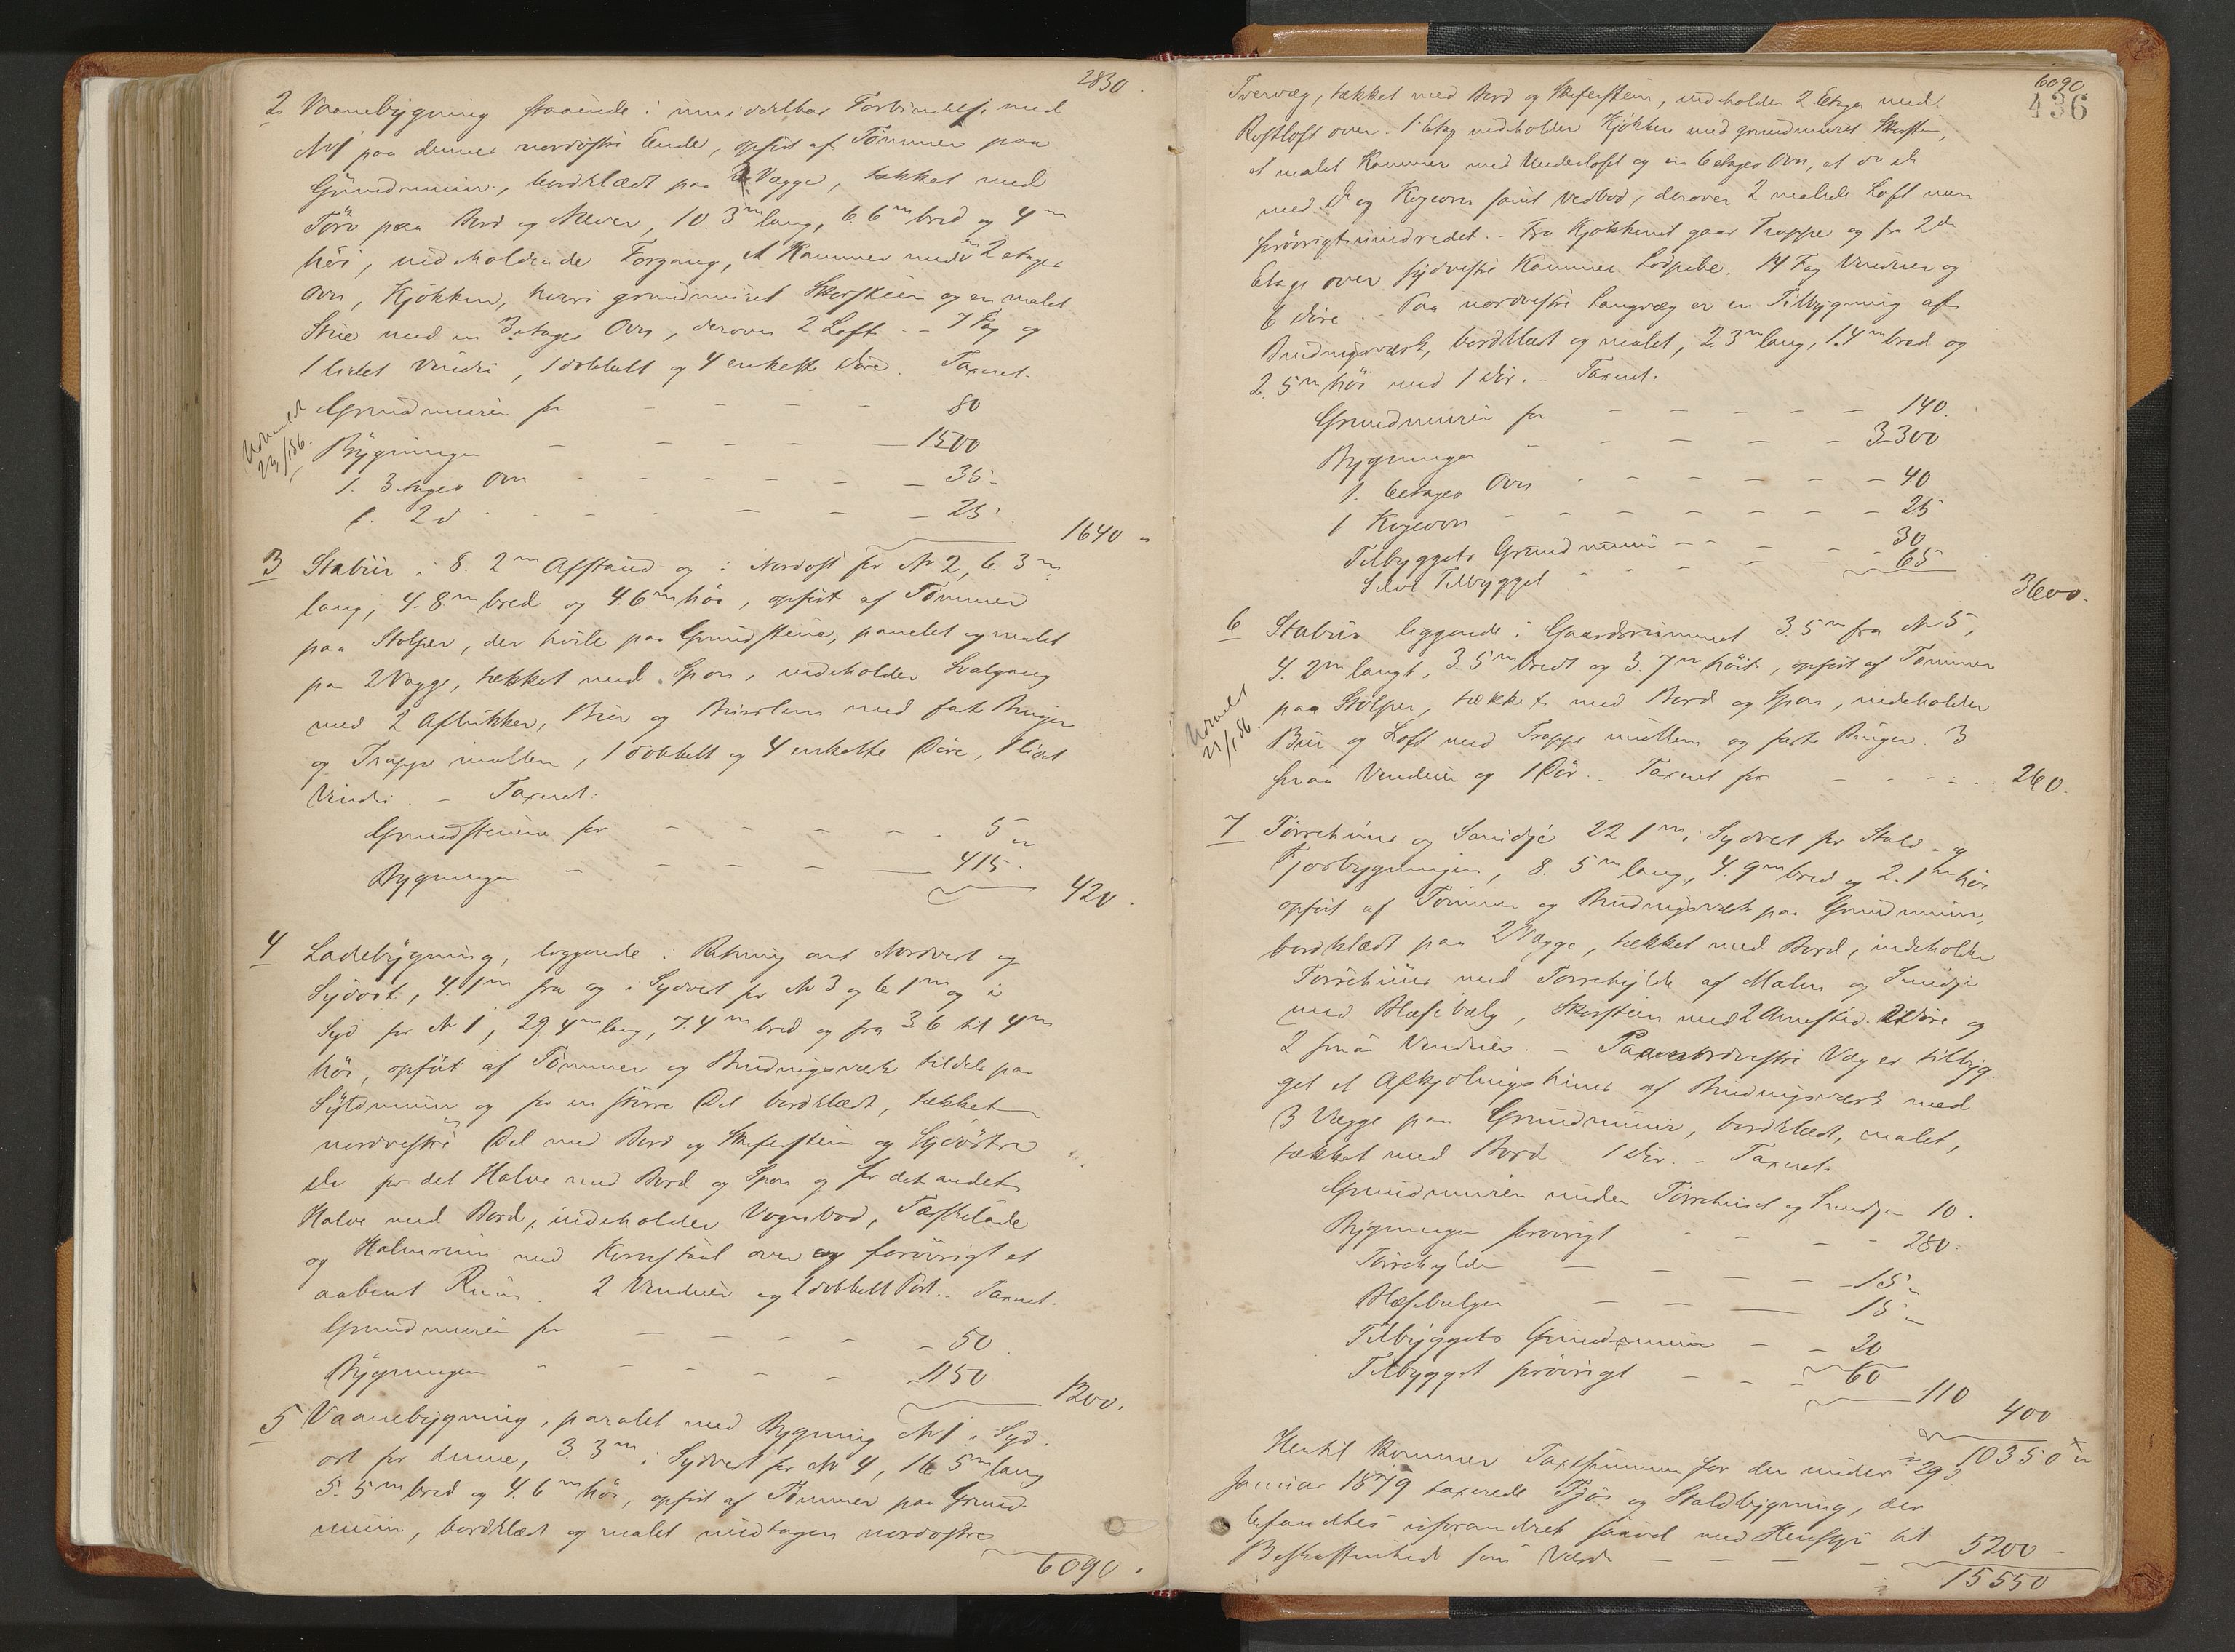 2830.
2 Vaanebygning staaende i umiddelbar Forbindelse med
N1 paa dennes nordøstre Ende, opført af Tømmer paa
Grundmuur, bordklædt paa 2 Vægge, tækket med
Törv paa Bord og Næver, 10.3m lang, 6.6m bred og 4m
höi, indeholdende Forgang, et Kammer med en 2 etages
Ovn, Kjøkken, hvori grundmuret Skorsten og en malet
Stue med en 3etages Ovn, derover 2 Loft. - 7 Fag og
1 lidet Vindu, 1 dobbelt og 4 enkelte Döre. Taxeret.
Grundmuren for - - - - 80
Udmeldt 23/1 86.
Bygningen - - - - 1500
1. 3 etages Ovn - - - - 35 -
1. 2 d - - - - 25.
1640 "
3 Stabur i 8.2m Afstand og i Nordost for N 2, 6.3m
lang, 4.8m bred og 4.6m höi, opført af Tømmer
paa Stolper, der hvile paa Grundstene, panelet og malet
paa 2 Vægge, tækket med Spon, indeholder Svalgang
med 2 Aflukker, Bur og Bursloem med faste Binger
og Trappe imellem, 1 dobbelt og 4 enkelte Döre, 1 lidet
Vindu. - Taxeret.
Grundstenene for - - - - 5 "
Bygningen - - - - 415.
420.
4 Ladebygning, liggende i Retning mod Nordvest og
Sydost, 4.1m fra og i Sydvest for N 3 og 6.1m og i
Syd for N 1, 29.4m lang, 7.4m bred og fra 3.6 til 4m
höi, opført af Tømmer og Bindingsværk tildels paa
Syldmuur og for en større Del bordklædt, tækket
nordvestre Del med Bord og Skifersteen og Sydöstre
do for det Halve med Bord og Spon og for det andet
Halve med Bord, indeholder Vognbod, Tærskelade
og Halmrum med Kornstaal over og forövrigt et
aabent Rum. 2 Vinduer og 2 dobbelt Port. - Taxeret.
Grundmuren for - - - - 50.
Bygningen " - - - - 1150
1200.
5 Vaanebygning, paralel med Bygning N 1 i Syd-
ost for denne, 3.3m i Sydvest for N 4, 16.5m lang
5.5m bred og 4.6m höi, opført af Tømmer paa Grund-
muur, bordklædt og malet undtagen nordostre
6090.
6090
436
Tvervæg, tækket med Bord og Skifersteen, indeholder 2 Etager med
Röstloft over. 1 Etage indeholder Kjökken med grundmuret Skorsten,
et malet Kammer med Underloft og en 6 etages Ovn, et do do
med do og Kogeovn samt Vedbod, derover 2 malede Loft men
forövrigt uindredet. - Fra Kjökkenet gaar Trappe og fra 2den
Etage over sydvestre Kammer Lodpibe. 14 Fag Vinduer og
6 Döre. - Paa nordvestre Langvæg er en Tilbygning af
Bindingsværk, bordklædt og malet, 2.3m lang, 1.4m bred og
2.5m höi med 1 Dör. - Taxeret.
Grundmuren for - - - - 140.
Bygningen - - - - 3300
1. 6etages Ovn - - - - 40
1 Kogeovn - - - - 25
Tilbyggets Grundmuur - - - - 30
Selve Tilbygget - - - - 65
3600.
6 Stabur liggende i Gaardsrummet 3.5m fra N 5,
4.2m langt, 3.5m bredt og 3.7m höit, opført af Tømmer
paa Stolper, tækket med Bord og Spon, indeholder
Udmeldt 23/1 86.
Bur og Loft med Trappe imellem og faste Binger. 3
smaa Vinduer og 1 Dör. - Taxeret for - - - - 260.
7 Törrehuus og Smidje 22.1m i Sydvest for Stald- og
Fjosbygningen, 8.5m lang, 4.9m bred og 2.1m höi
opført af Tømmer og Bindingsværk paa Grundmuur,
bordklædt paa 2 Vægge, tækket med Bord, indeholder
Törrehuus med Törrehylde af Malm og Smidje
med Blæsebælg, Skorsteen med 2 Arnested. 2 Döre og
2 smaa Vinduer. - Paa nordvestre Væg er tilbyg-
get et Afkjölingshuus af Bindingsværk med
3 Vægge paa Grundmuur, bordklædt, malet,
tækket med Bord. 1 Dör. - Taxeret.
Grundmuren under Törrehuset og Smidjen 10.
Bygningen forövrigt - - - - 280.
Törrehylden - - - - 15 "
Blæsebælgen - - - - 15 "
Tilbyggets Grundmuur - - 20
Tilbygget forövrigt - - - 60
110
400
10350 "
Hertil kommer Taxtsummen for den under 29
Januar 1879 taxerede Fjös og Staldbygning, der
befandtes uforandret saavel med Hensyn til
Beskaffenhed som Værdi - - - - 5200 -
15550